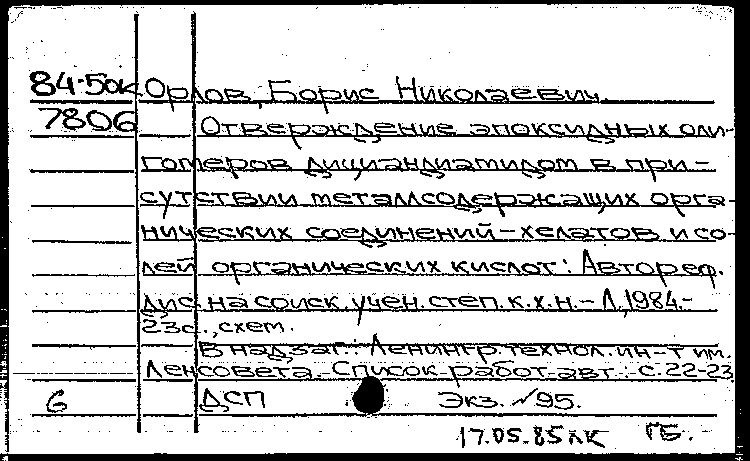 84-5ок Орлов, Борис Николаевич
7806 Отверждение эпоксидных оли-
гомеров дициандиамидом в при-
сутствии металлсодержащих орга-
нических соединений-хелатов и со-
лей органических кислот: Автореф.
дис. на соиск. учен. степ. к.х.н. - Л., 1984.-
23с., схем.
В надзаг.: Ленингр. технол. ин-т им.
Ленсовета. Список работ авт.: с. 22-23
б ДСП Экз. №95.
17.05.85 лк ГБ.